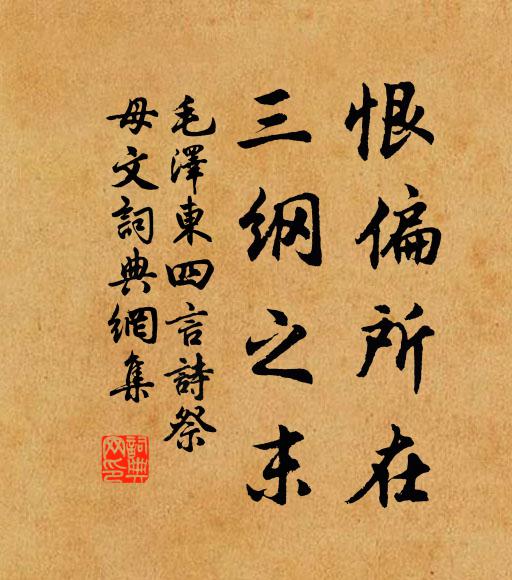 恨偏所在
三纲之末
毛澤東四言詩祭
母文詞典網集
詞典網印